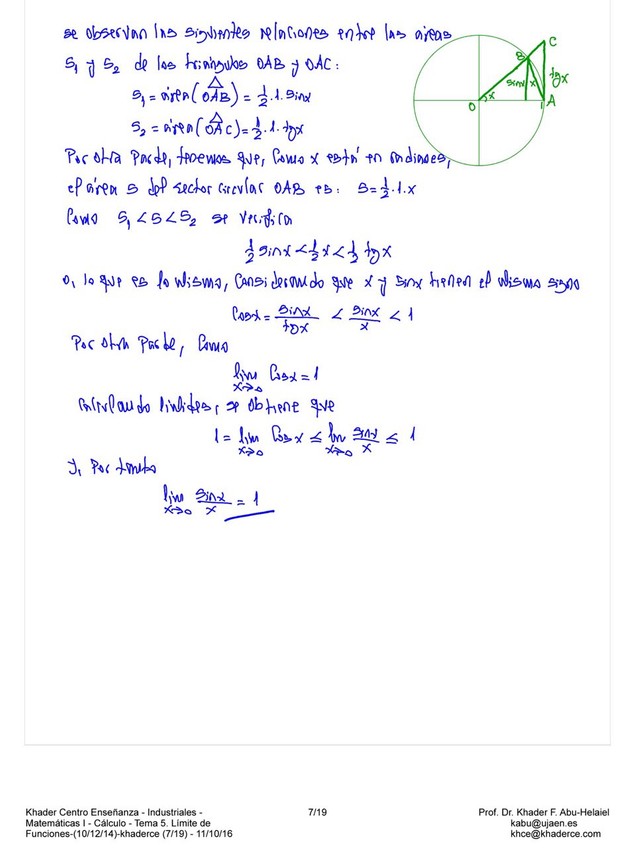 se observan las siguientes relaciones entre las áreas
S₁ y S₂ de los triángulos OAB y OAC:
S₁ = área(OAB) = 1/2 · 1 · sinx
S₂ = área(OAC) = 1/2 · 1 · tgx
Por otra parte, tenemos que, como x está en radianes,
el área S del sector circular OAB es: S = 1/2 · 1 · x
Como S₁ < S < S₂ se verifica
1/2 sinx < 1/2 x < 1/2 tgx
o, lo que es lo mismo, considerando que x y sinx tienen el mismo signo
Cosx = sinx/tgx < sinx/x < 1
Por otra parte, como
lim x→0 Cosx = 1
Calculando límites, se obtiene que
1 = lim x→0 Cosx ≤ lim x→0 sinx/x ≤ 1
y, por tanto
lim x→0 sinx/x = 1
C
B
sinx
x
tgx
O
x
1
A
Khader Centro Enseñanza - Industriales -
Matemáticas I - Cálculo - Tema 5. Límite de
Funciones-(10/12/14)-khaderce (7/19) - 11/10/16
7/19
Prof. Dr. Khader F. Abu-Helaiel
kabu@ujaen.es
khce@khaderce.com